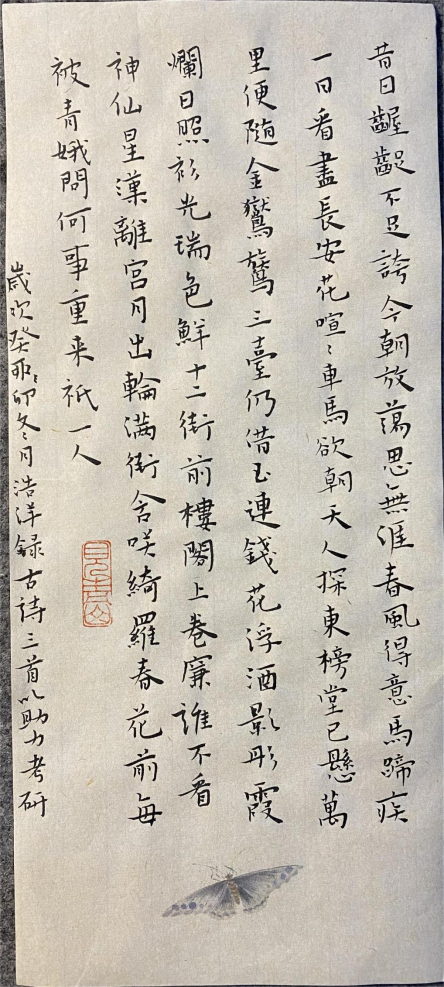 昔日齷齪不足誇今朝放蕩思無涯春風得意馬蹄疾
一日看盡長安花喧〻車馬欲朝天人探東榜堂已懸萬
里便隨金鸑鷟三臺仍借玉連錢花浮酒影彤霞
爛日照衫光瑞色鮮十二街前樓閣上卷簾誰不看
神仙星漢離宮月出輪滿街含咲綺羅春花前每
被青娥問何事重来祇一人
歲次癸卯冬月浩洋録古詩三首以助力考研